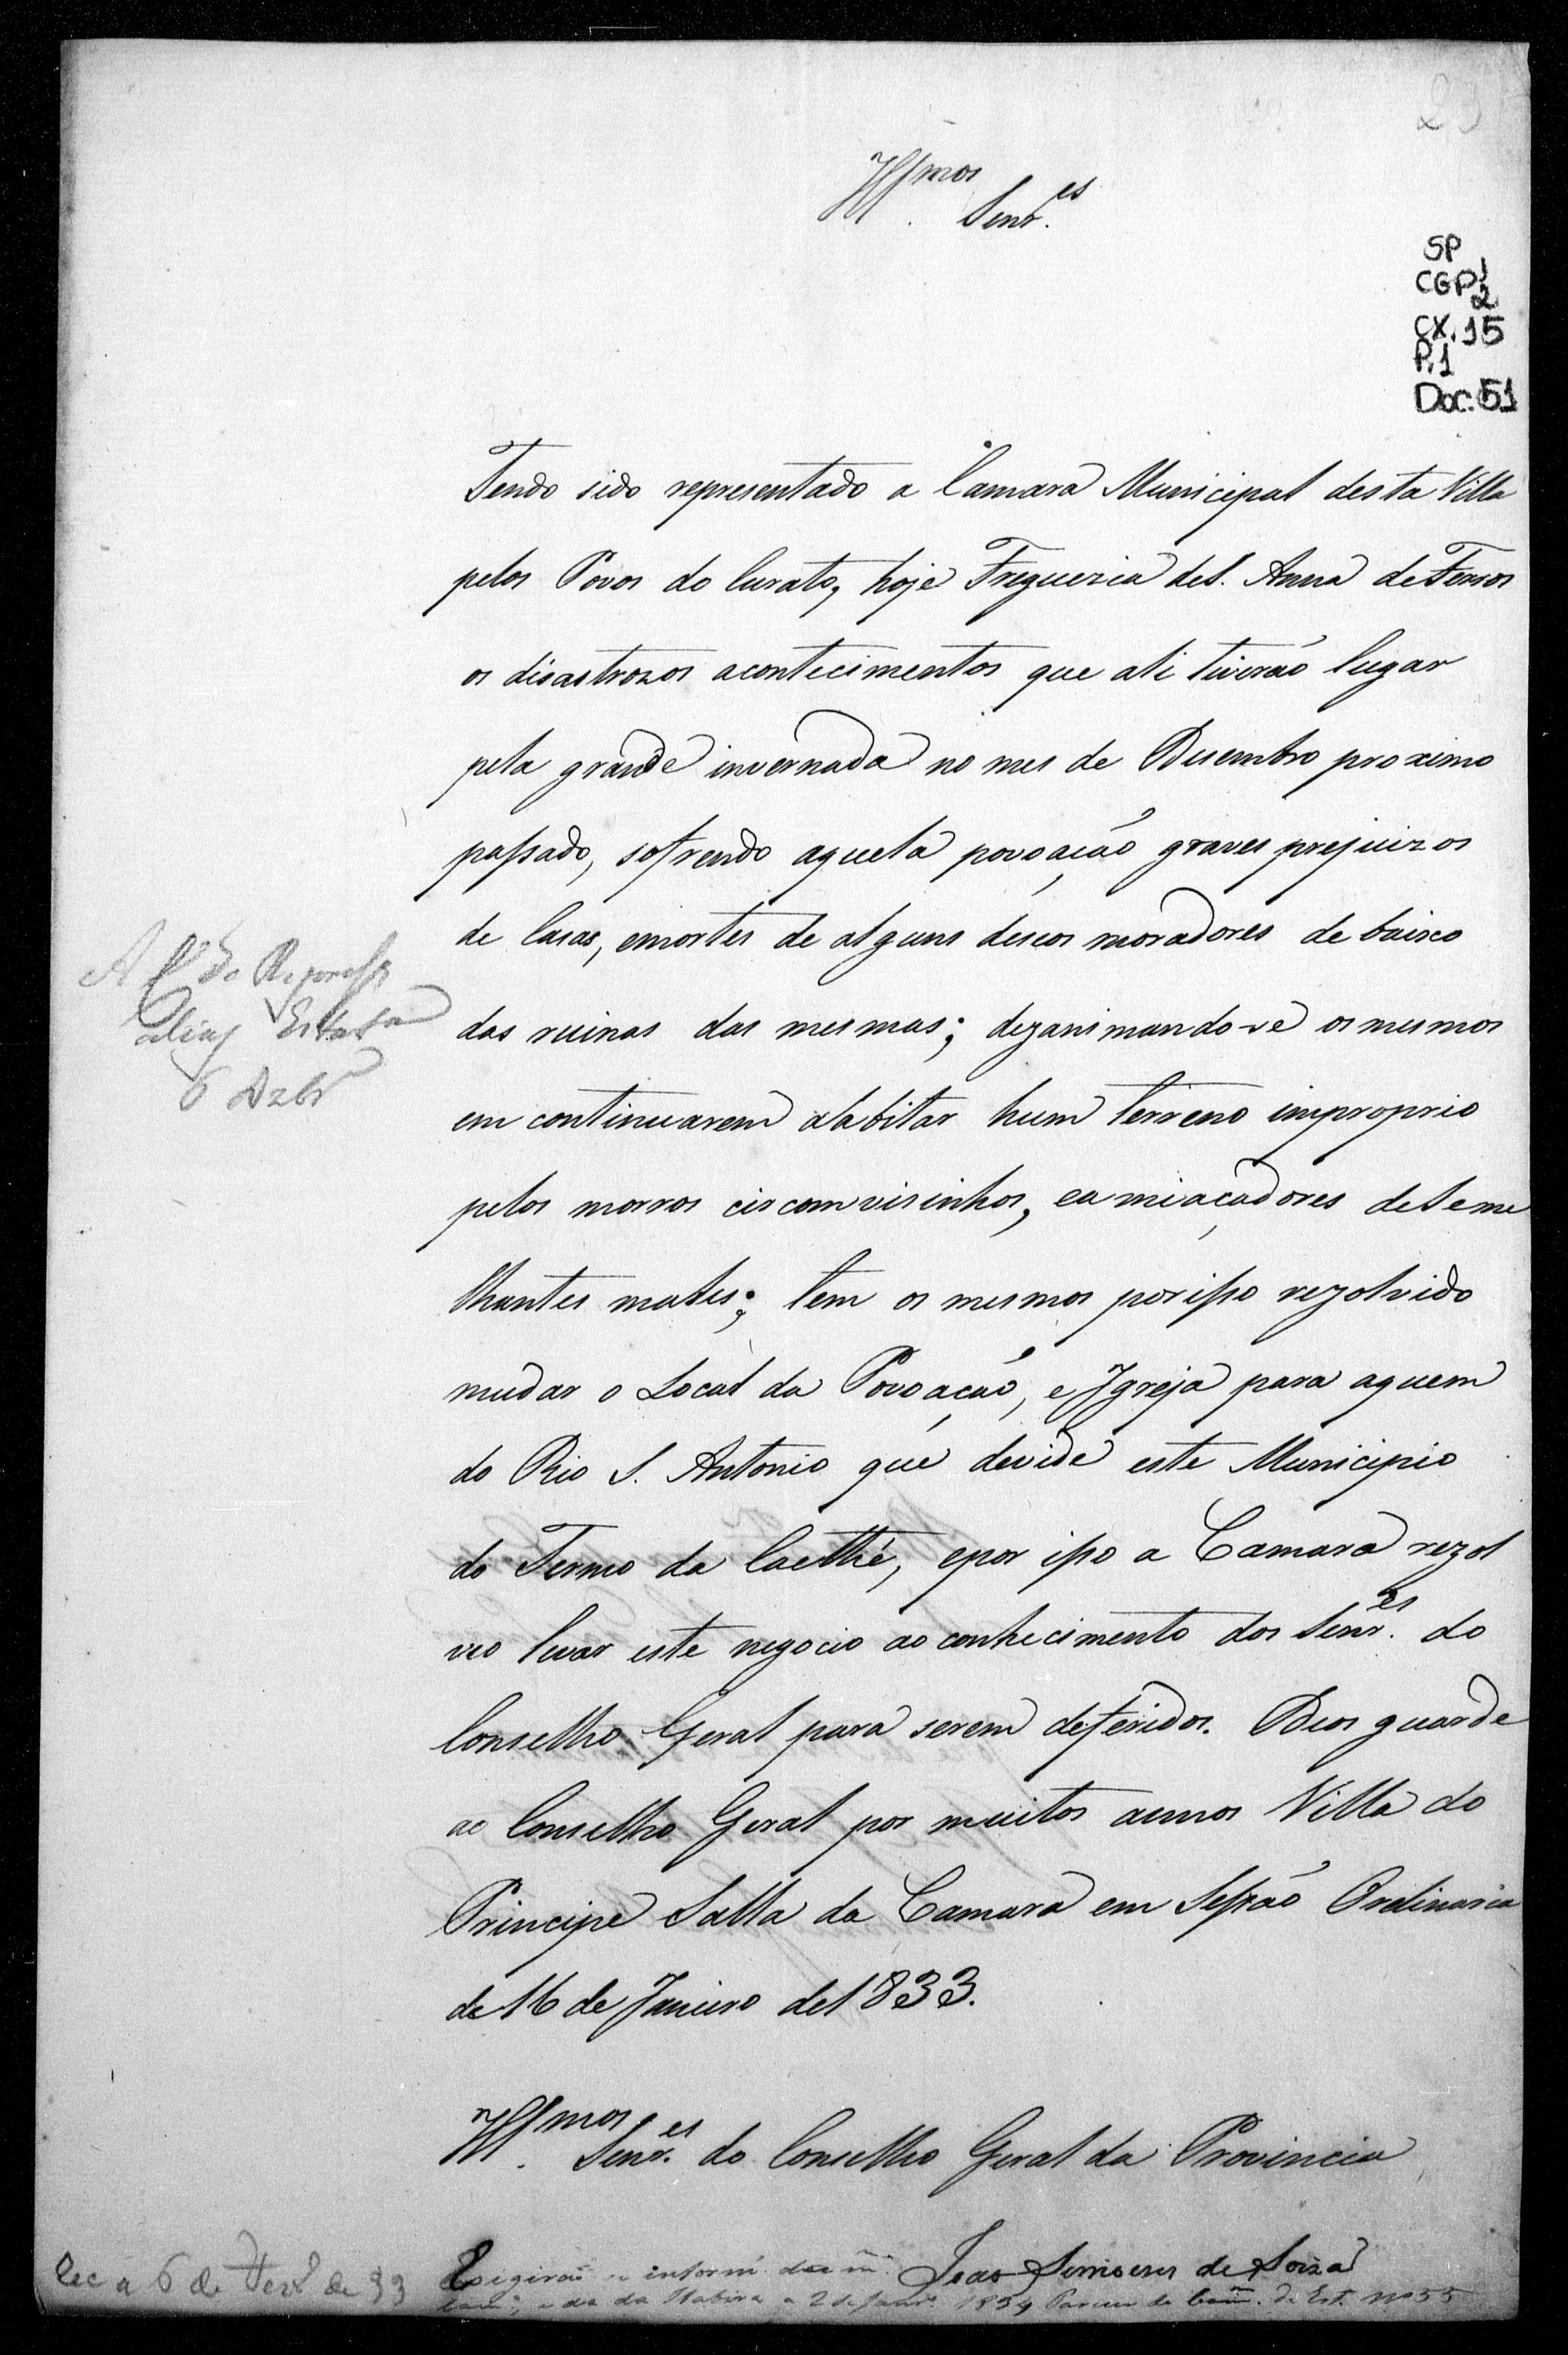 29
Illmos
Senr.es
SP
CGP 1
2
CX. 15
P. 1
Doc. 51
Tendo sido representado a Camara Municipal desta Villa
pelos Povos do Curato, hoje Freguezia de S. Anna de Ferros
os disastrozos acontecimentos que ali tiverão lugar
pela grande invernada no mes de Desembro proximo
passado, sofrendo aquela povoação graves prejuizos
de Casas, emortes de alguns deseos moradores de baixo
das ruinas das mesmas; dezanimando-se os mesmos
em continuarem ahabitar hum terreno improprio
pelos morros circomvisinhos, eamiaçadores de seme
lhantes males; tem os mesmos porisso rezolvido
mudar o Local da Povoação, e Igreja para aquem
do Rio S. Antonio que devide este Municipio
do Termo da Caethé, epor isso a Camara rezol
veo levar este negocio ao conhecimento dos Senr.es do
Conselho Geral para serem deferidos. Deos guarde
ao Conselho Geral por muitos annos Villa do
Principe Salla da Camara em Sessão Ordinaria
de 16 de Janeiro de 1833.
Illmos Senr.es do Conselho Geral da Provincia
João de Souza
A
aliás Estat.a
6 Dzbr
Rec a 6 de de 33
Exigirão inform
e da da Itabira a 2 de Janr. 1834 Parecer da Com. de Est. nº 55